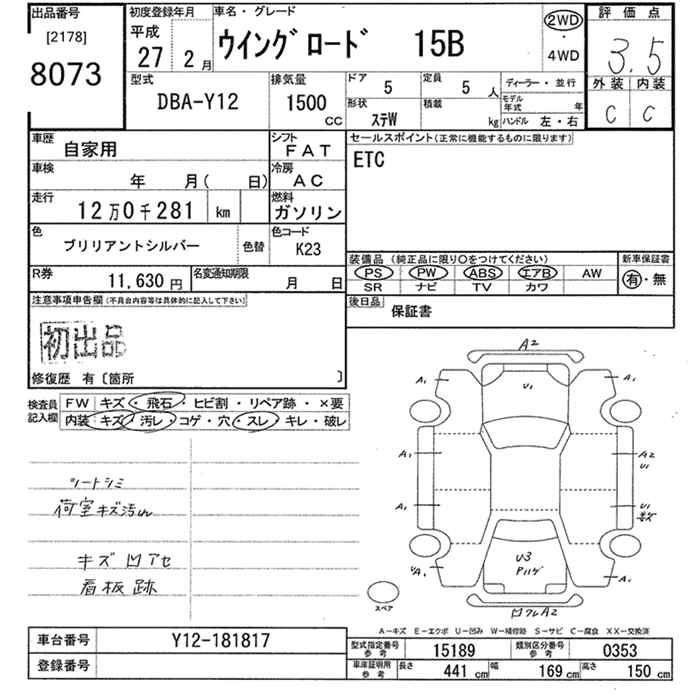 出品番号
[2178]
8073
初度登録年月
平成
27年 2月
車名・グレード
ウイングロード 15B
2WD
・
4WD
評価点
3.5
外装 内装
C C
型式
DBA-Y12
排気量
1500
CC
ドア 5
定員 5人
形状 ステW
積載 kg
ディーラー・並行
モデル年式 年
ハンドル 左・右
車歴 自家用
シフト FAT
車検 年 月( 日)
冷房 AC
走行 12万0千281 km
燃料 ガソリン
色 ブリリアントシルバー 色替
色コード K23
R券 11,630円
名変通知期限 月 日
セールスポイント(正常に機能するものに限ります)
ETC
装備品 (純正品に限り〇をつけてください)
PS PW ABS エアB AW
SR ナビ TV カワ
新車保証書
有・無
後日品 保証書
注意事項申告欄(不具合内容等は具体的に記入して下さい)
初出品
修復歴 有〔箇所 〕
検査員記入欄
FW キズ・飛石・ヒビ割・リペア跡・×要
内装 キズ・汚レ・コゲ・穴・スレ・キレ・破レ
シートシミ
荷室キズ汚れ
キズ凹アセ
看板跡
A2
A1
U1
A1
A1
A2
U1
A1
U1
UA1
U3
A1
スペア
凹ワレA2
A-キズ E-エクボ U-凹み W-補修跡 S-サビ C-腐食 XX-交換済
車台番号 Y12-181817
登録番号
型式指定番号参考 15189
類別区分番号参考 0353
車庫証明用参考 長さ 441cm 幅 169cm 高さ 150cm